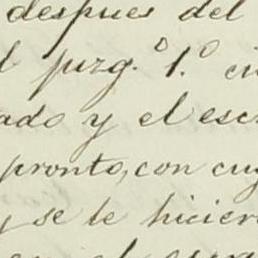 despues del
l juzg.º 1.º
ado y el esc
pronto, con cuy
y se le hiciera